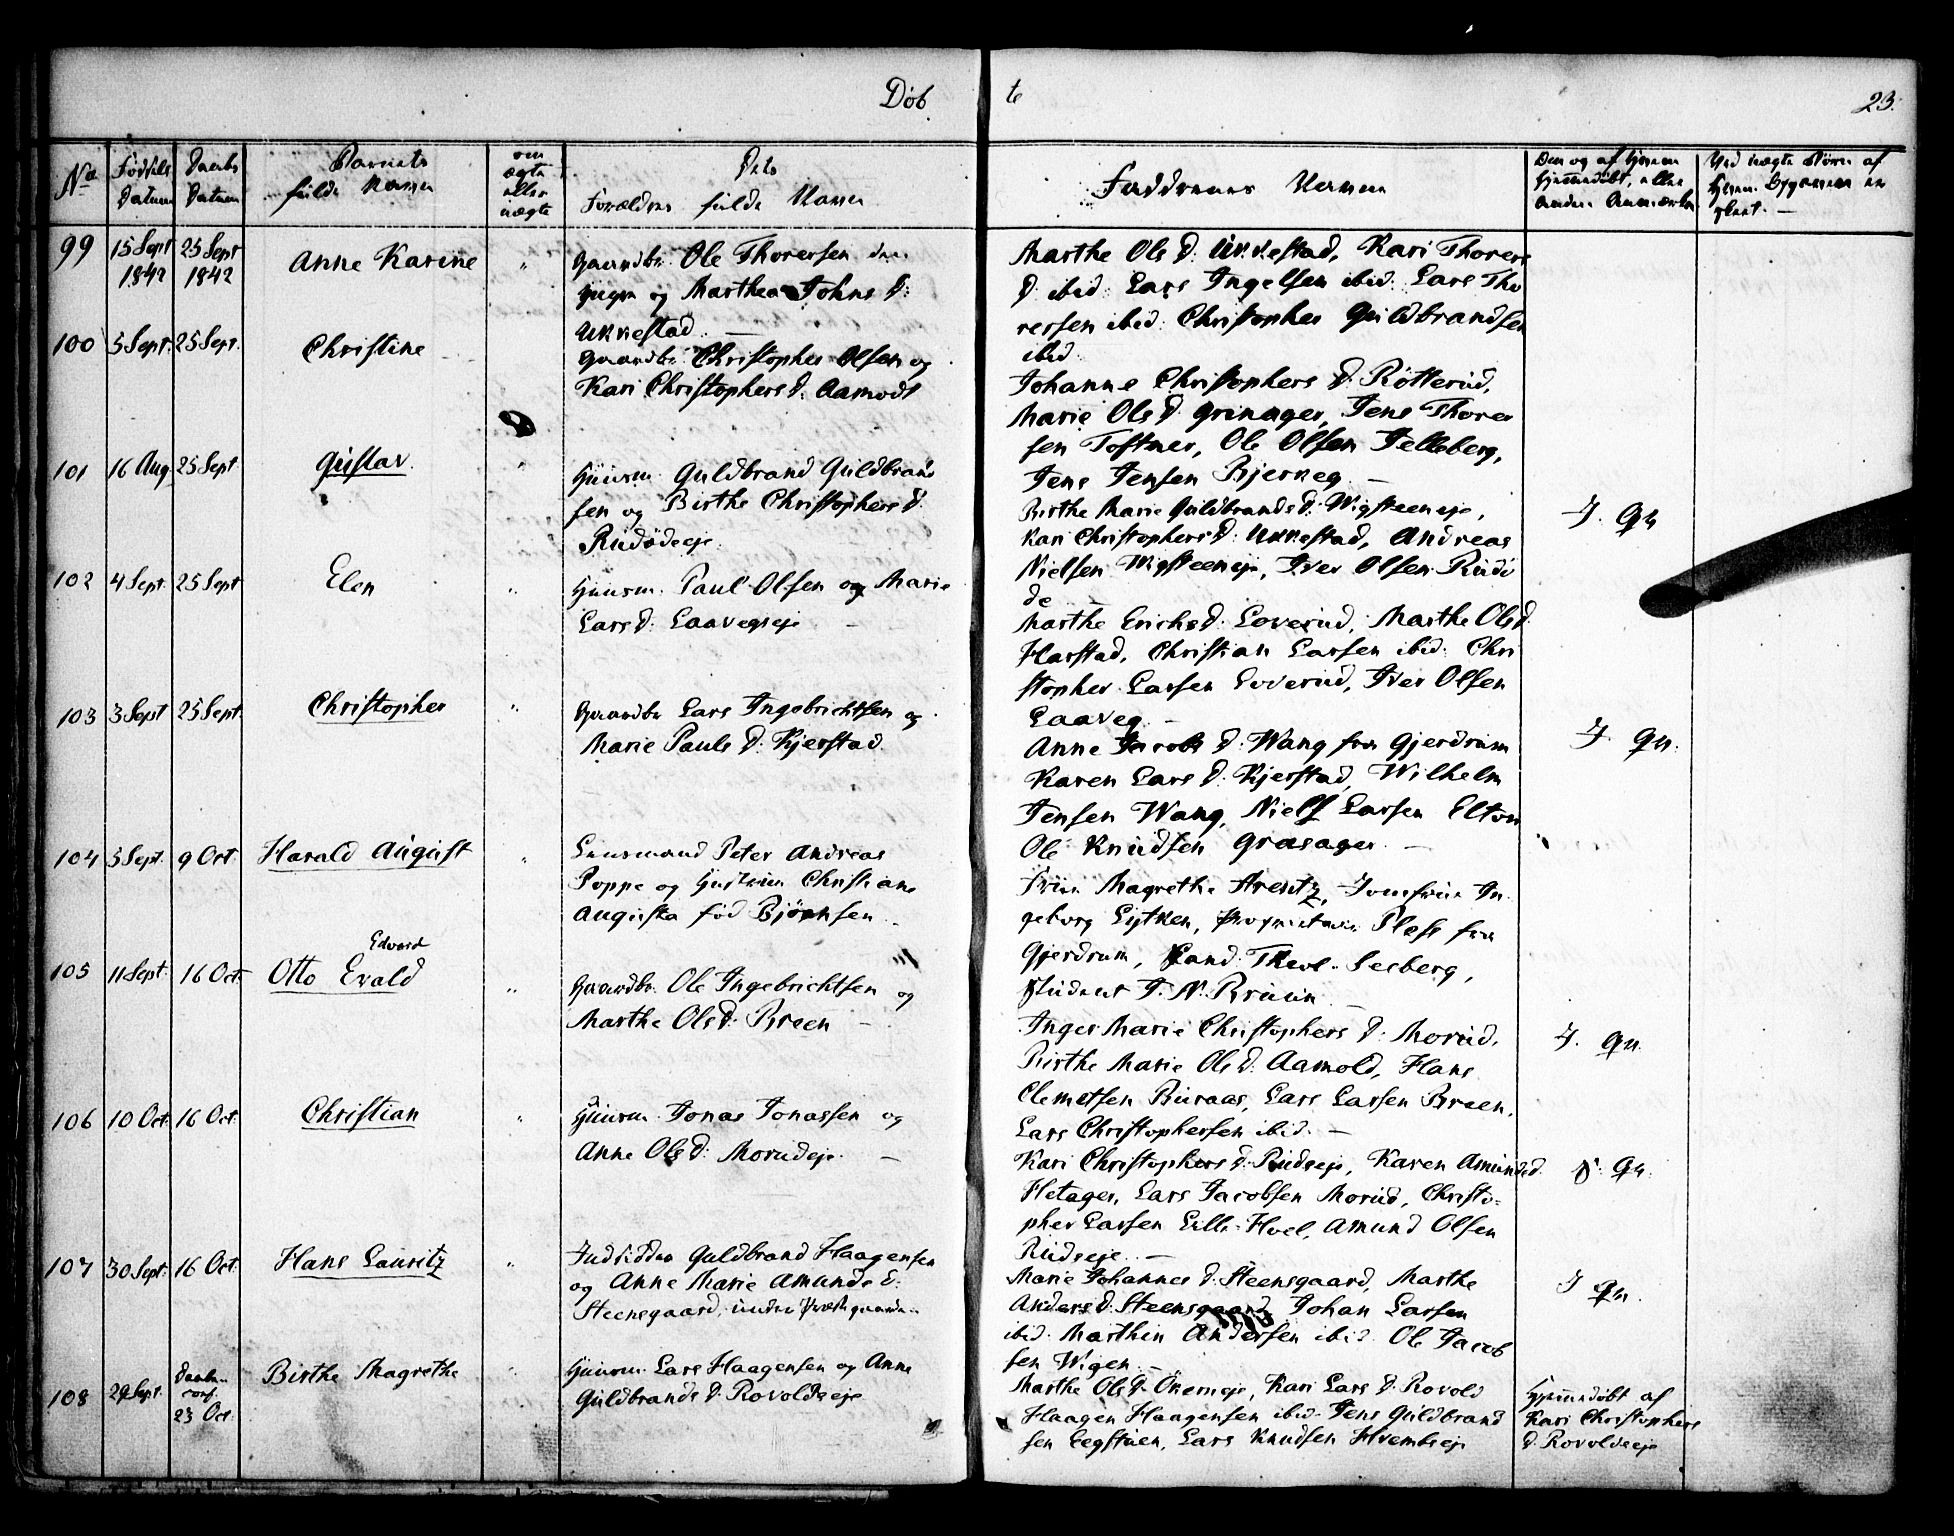 Døb
te
23.
No
Fødsels Datum
Daabs Datum
Barnets fulde Navn
om ægte eller uægte
Dets Forældres fulde Navn
Faddernes Navne
Ved uægte Børn af
99
15 Sept 1842
25 Sept 1842
Anne Karine
"
Gaardbr. Ole Thoresen
og Marthea Johns D:
Ukkestad. —
Marthe Ols D: Ukkestad, Kari Thores
D ibid: Lars Ingelsen ibid: Lars Tho
resen ibid: Christopher Guldbrandsen
ibid:
100
5 Sept.
25 Sept.
Christine
Gaardbr. Christopher Olsen og
Kari Christophers D: Aamodt
Johanne Christophers D: Rotterud,
Marie Ols D: Grinager, Jens Thore
sen Toftner, Ole Olsen Jelleberg,
Jens Jensen Bjerneg. —
101
16 Aug.
25 Sept
Gustav.
"
Huusm. Guldbrand Guldbrand
sen og Birthe Christophers D:
Rudødeeje.
Birthe Marie Guldbrands D: Wigsteeneje,
Kari Christophers D: Ukkestad, Andreas
Nielsen Wigsteeneje, Iver Olsen Rudø
de —
J. Gn
102
4 Sept.
25 Sept
Elen
"
Huusm. Paul Olsen og Marie
Lars D: Laavegseje —
Marthe Erichs D: Loverud, Marthe Ols D:
Harstad, Christian Larsen ibid: Chri
stopher Larsen Loverud, Iver Olsen
Laaveg. —
103
3 Sept
25 Sept.
Christopher
"
Gaardbr Lars Ingebrichtsen og
Marie Pauls D: Kjerstad.
Anne Jacobs D: Wang fra Gjerdrum
Karen Lars D: Kjerstad, Wilhelm
Jensen Wang, Niels Larsen Elton
Ole Knudsen Grasager. —
J. Gn.
104
5 Sept.
9 Oct.
Harald August
"
Lensmand Peter Andreas
Poppe og Hustrue Christiane
Augusta fød Bjørnsen —
Frue Magrethe Arentz, Jomfrue In
geborg Lytken, Proprietair Pless fra
Gjerdrum, Cand. Theol. Seeberg,
Student J. N. Bruun —
105
11 Sept.
16 Oct.
Edvard
Otto Evald
"
Gaardbr. Ole Ingebrichtsen og
Marthe Ols D: Breen —
Inger Marie Christophers D: Morud,
Birthe Marie Ols D: Aamold, Hans
Clemetsen Buraas, Lars Larsen Breen,
Lars Christophersen ibid. —
J. Gn.
106
10 Oct.
16 Oct.
Christian
"
Huusm. Jonas Jonassen og
Anne Ols D: Morudeje. —
Kari Christophers D: Rudseje, Karen Amunds D.
Hetager, Lars Jacobsen Morud, Christo-
pher Larsen Lille-Hoel, Amund Olsen
Rudseje. —
Gn.
107
30 Sept.
16 Oct.
Hans Lauritz
"
Indsidder Guldbrand Haagensen
og Anne Marie Amunds D:
Steensgaard, under Præstegaarden
Marie Johannes D: Steensgaard, Marthe
Anders D: Steensgaard, Johan Larsen
ibid. Marthin Andersen ibid. Ole Jacob
sen Wigen. —
J Gn.
108
29 Sept.
Daaben conf. 23 Oct.
Birthe Magrethe
"
Huusm. Lars Haagensen og Anne
Guldbrands D: Rovoldseje
Marthe Ols D: Ønerneje, Kari Lars D: Rovold
Haagen Haagensen ibid. Jens Guldbrand
sen Eegstuen, Lars Knudsen Hvembseje
Hjemmedøbt af
Kari Christophers
D. Rovoldseje